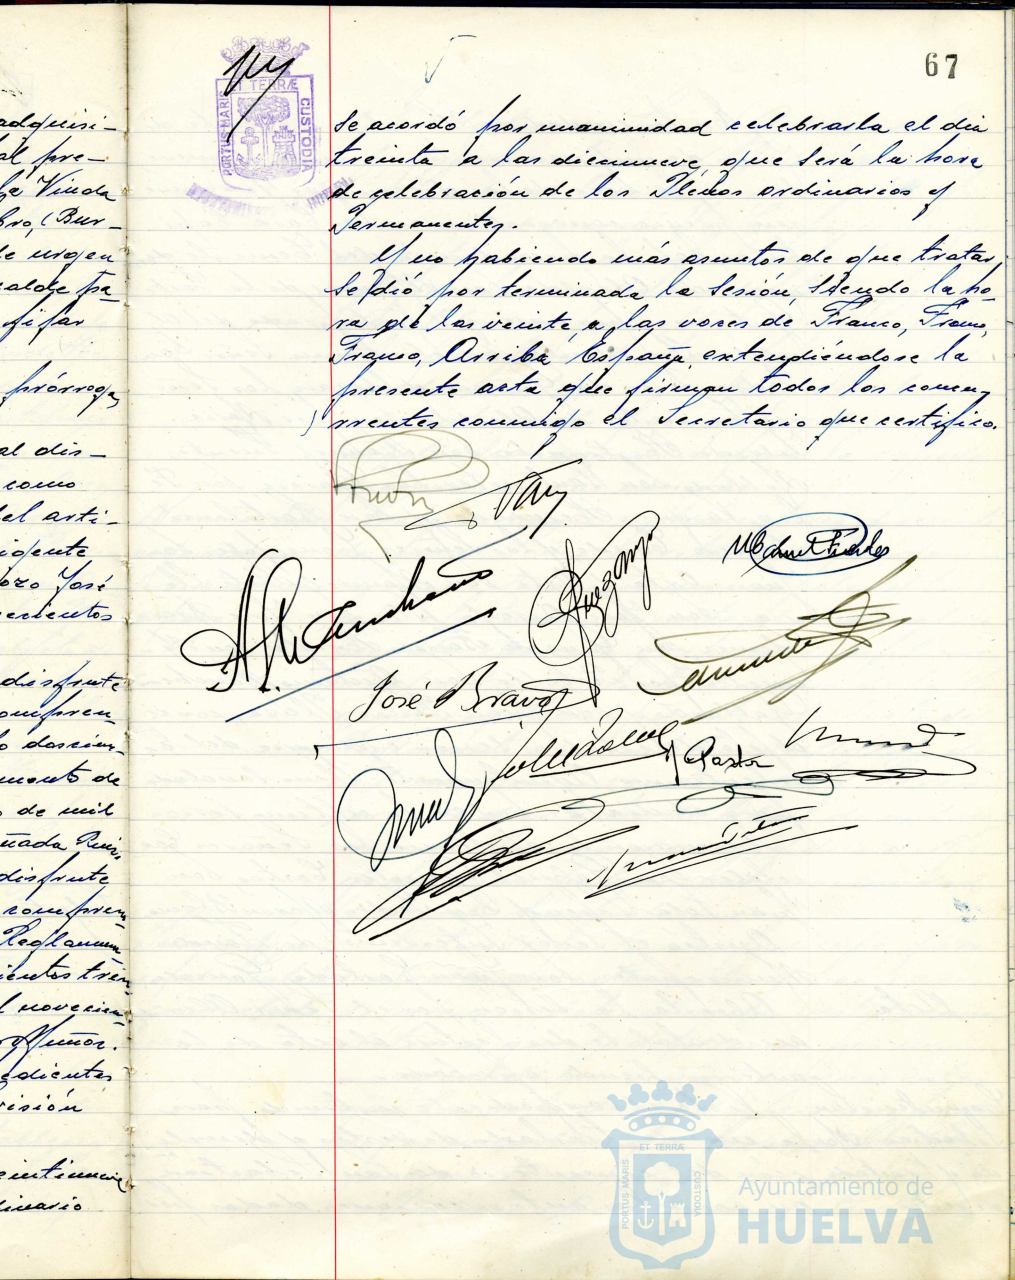 67
PORTUS MARIS
ET TERRÆ
CUSTODIA
adquisi-
al pre-
Viuda
bro, (Bur-
de urgen
calde pa-
fijar
prórroga,
al dis-
como
del arti-
igente
ozo José
ecientos
disfrute
compren-
mento de
de mil
ñada Ruiz,
disfrute
compren-
Reglamen-
cientos trein-
l novecien-
Muñoz.
edientes
visión
eintinueve
dinario
se acordó por unanimidad celebrarla el dia
treinta a las diecinueve, que será la hora
de celebración de los Plenos ordinarios y
Permanentes.
Y no habiendo más asuntos de que tratar,
se dió por terminada la sesión, siendo la ho-
ra de las veinte, a las voces de Franco, Franco,
Franco, Arriba España, extendiéndose la
presente acta que firman todos los concu-
rrentes conmigo el Secretario que certifico.
José Bravo
Pastor
PORTUS MARIS
ET TERRÆ
CUSTODIA
Ayuntamiento de
HUELVA